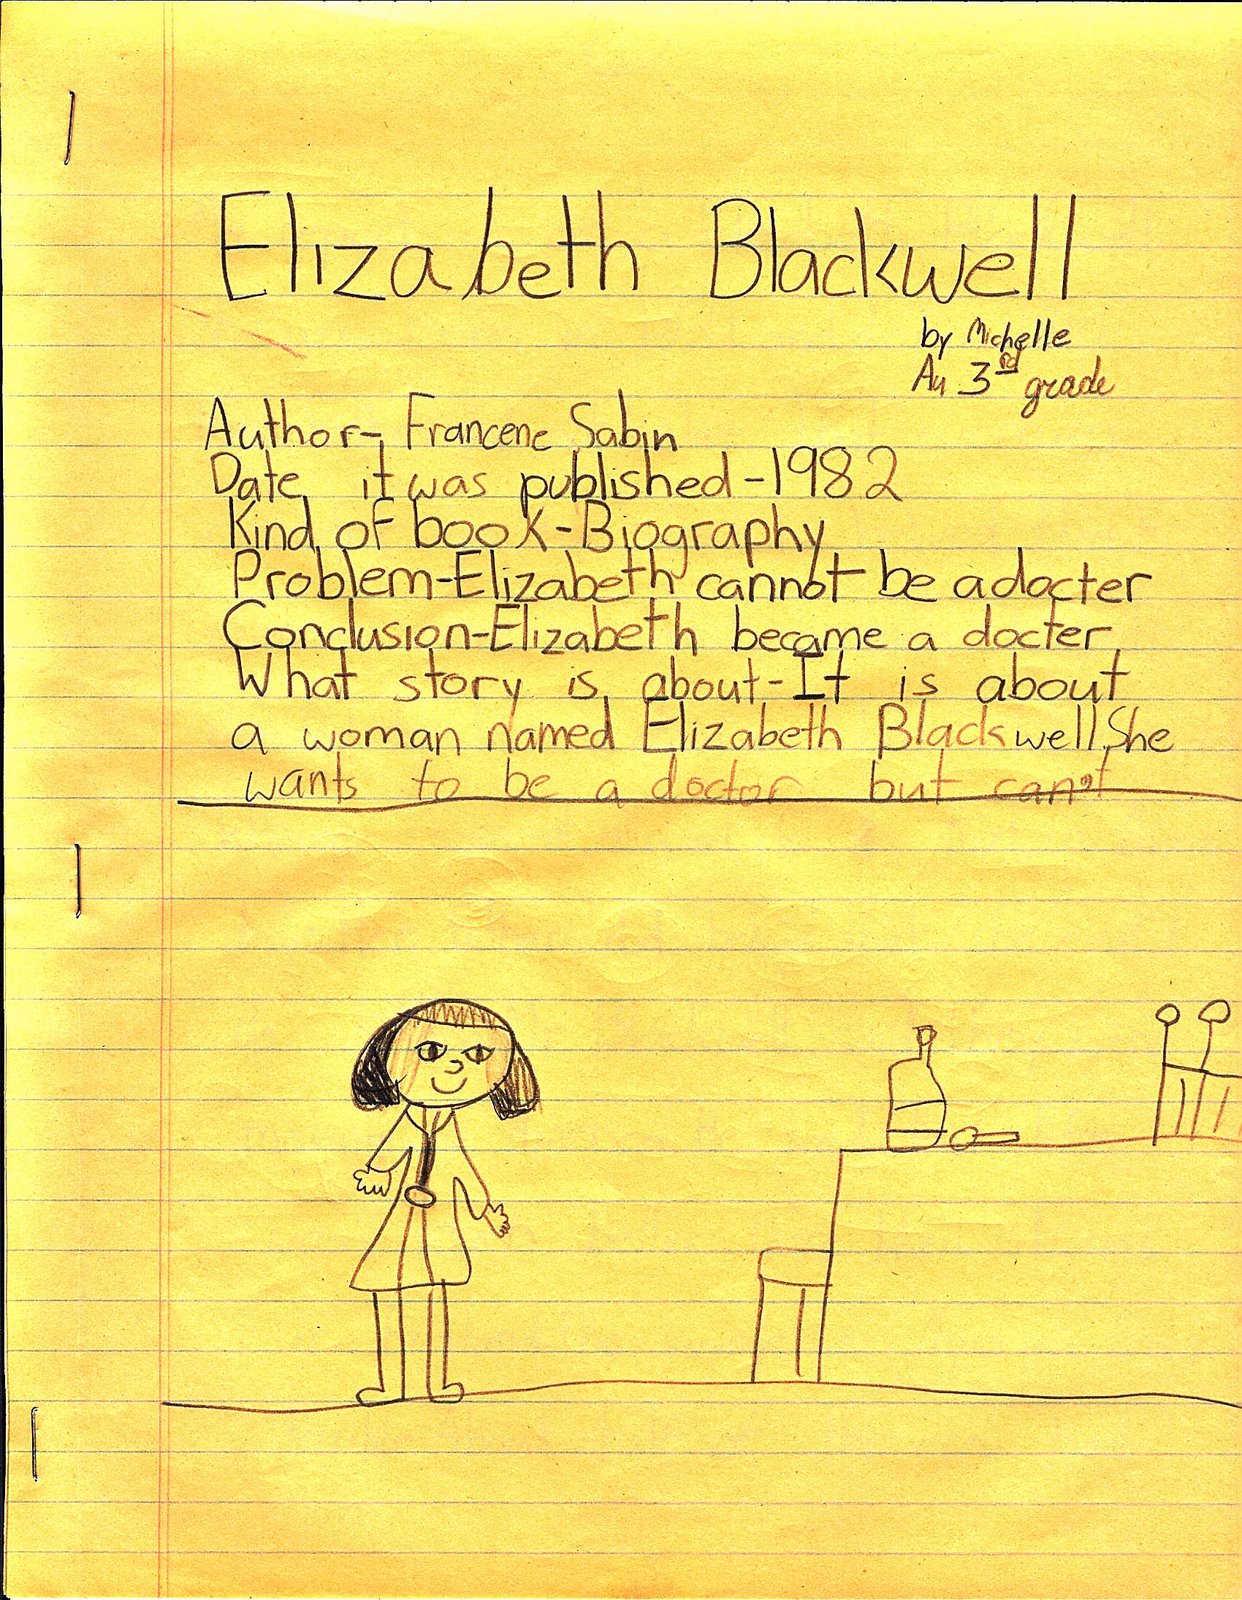 Elizabeth Blackwell
by Michelle
Au 3rd grade
Author- Francene Sabin
Date it was published-1982
Kind of book-Biography
Problem-Elizabeth cannot be a docter
Conclusion-Elizabeth became a docter
What story is about-It is about
a woman named Elizabeth Blackwell. She
wants to be a doctor but can't